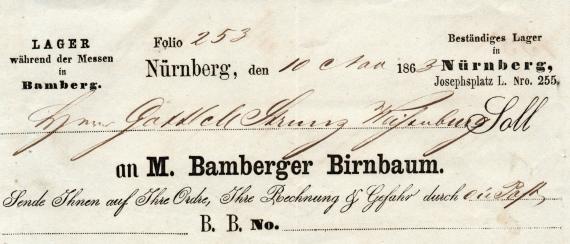 LAGER
während der Messen
in
Bamberg.
Folio 253
Nürnberg, den 10 Nov 1863
Beständiges Lager
in
Nürnberg,
Josephsplatz L. Nro. 255.
Herrn Gottlieb Strunz Weissenburg Soll
an M. Bamberger Birnbaum.
Sende Ihnen auf Ihre Ordre, Ihre Rechnung & Gefahr durch die Post
B. B. No.